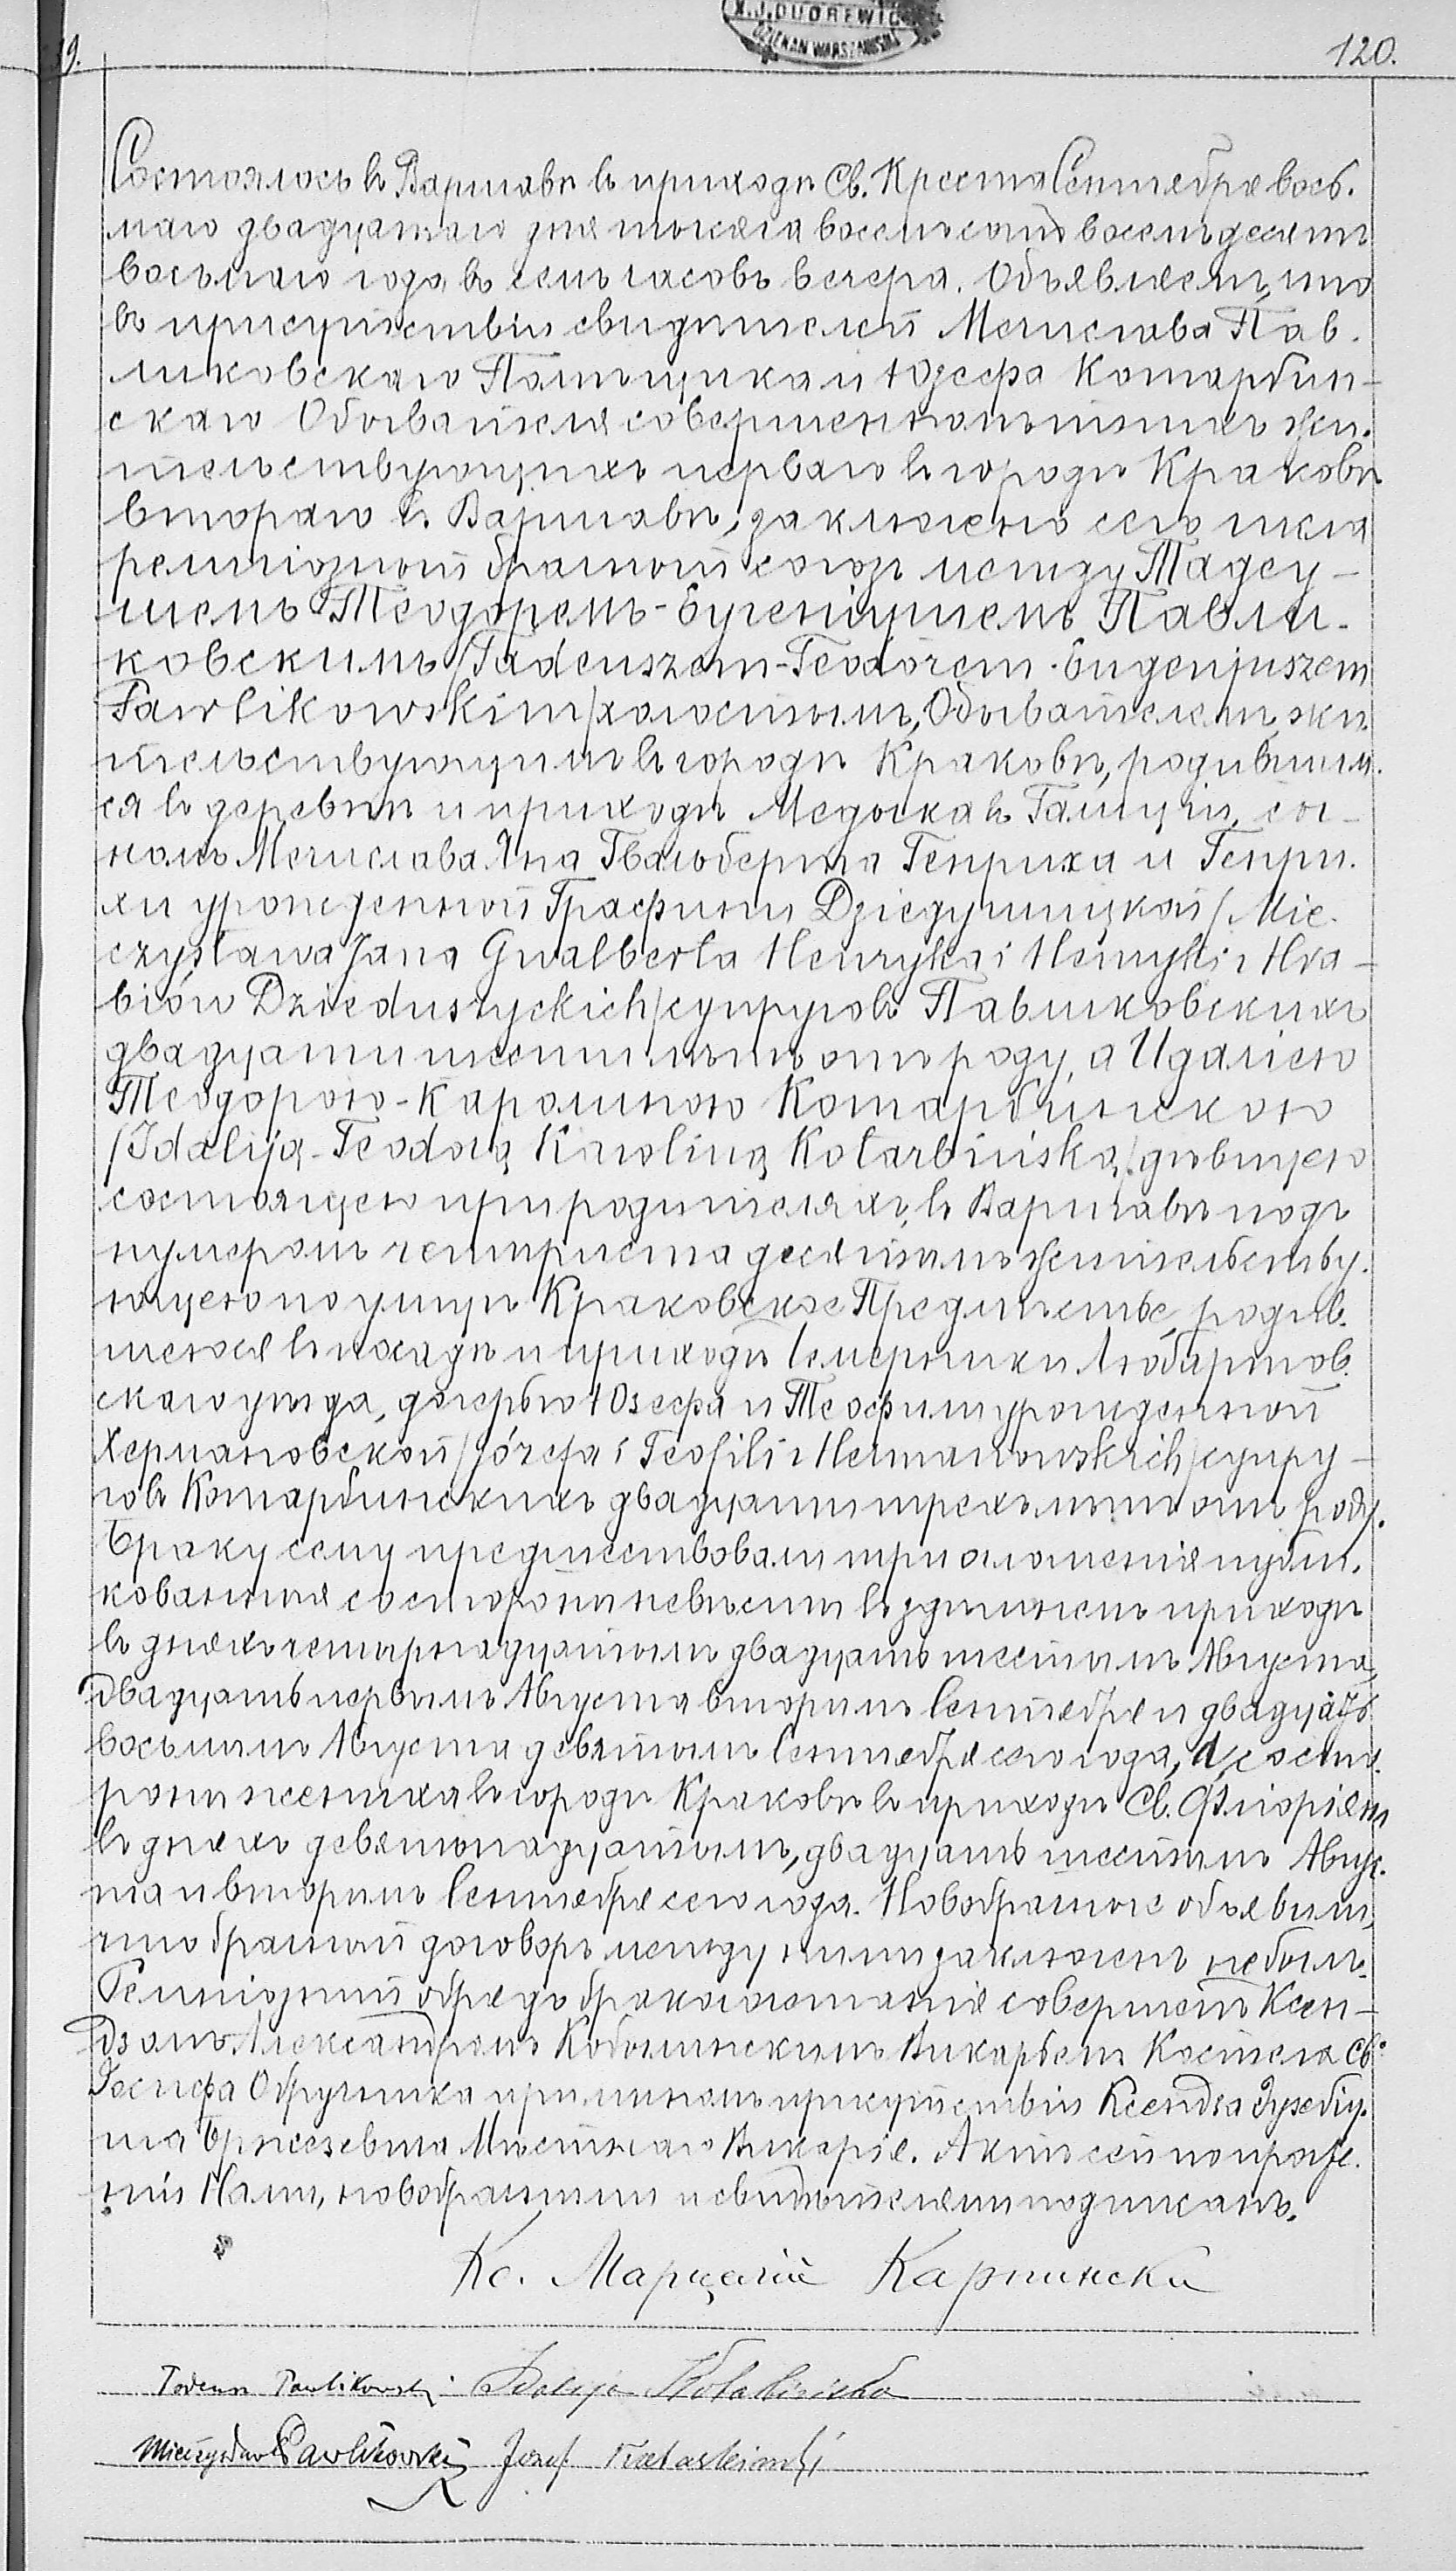 K.J.DUDREWICZ
DZIEKAN WARSZAWSKI
19.
120.
Состоялось въ Варшавѣ въ приходѣ Св. Креста Сентября вось-
маго двадцатаго дня тысяча восемьсотъ восемьдесятъ
восьмаго года, въ семь часовъ вечера. Объявляемъ, что
въ присутствіи свидѣтелей Мечислава Пав-
ликовскаго Помѣщика и Юзефа Котарбин-
скаго Обывателя совершеннолѣтнихъ жи-
тельствующихъ перваго въ городѣ Краковѣ
втораго въ Варшавѣ, заключенъ сего числа
религіозный брачный союзъ между Тадеу-
шемъ Теодоремъ-Еугеніушемъ Павли-
ковскимъ /Tadeuszem-Teodorem-Eugenjuszem
Pawlikowskim/ холостымъ, Обывателемъ, жи-
тельствующимъ въ городѣ Краковѣ, родившим-
ся въ деревнѣ и приходѣ Медыка въ Галиціи, сы-
номъ Мечислава Яна Гвальберта Генриха и Генри-
хи урожденной Графини Дзѣдушицкой / Mie-
czysława Jana Gwalberta Henryka i Henryki z Hra-
biów Dzieduszyckich/ супруговъ Павликовскихъ
двадцати шести лѣтъ отъ роду, а Идаліею
Теодорою-Каролиною Котарбинскою
/Idaliją-Teodorą Karoliną Kotarbińską/ дѣвицею
состоящею при родителяхъ, въ Варшавѣ подъ
нумеромъ четыриста десятымъ жительству-
ющею по улицѣ Краковское Предмѣстье, родив-
шеюся въ посадѣ и приходѣ Чемерники Любартов-
скаго уѣзда, дочерью Юзефа и Теофили урожденной
Хермановской /Józefa i Teofili z Hermanowskich/ супру-
говъ Котарбинскихъ двадцати трехъ лѣтъ отъ роду.
Браку сему предшествовали три оглашенія публи-
кованныя со стороны невѣсты въ здѣшнемъ приходѣ
въ дняхъ четырнадцатымъ двадцать шестымъ Августа,
двадцать первымъ Августа вторымъ Сентября и двадцать
восьмымъ Августа девятымъ Сентября сего года, а со сто-
роны жениха въ городѣ Краковѣ въ приходѣ Св. Флоріяна
въ дняхъ девятнадцатымъ, двадцать шестымъ Авгус-
та и вторымъ Сентября сего года. Новобрачные объявили,
что брачный договоръ между ними заключенъ не былъ.
Религіозный обрядъ бракосочетанія совершенъ Ксен-
дзомъ Александромъ Кобылинскимъ Викарьемъ Костела Св.
Іосифа Обручника при личномъ присутствіи Ксендза Эузебіу-
ша Брзезевича Мѣстнаго Викарія. Актъ сей по прочте-
ніи Нами, новобрачными и свидѣтелями подписанъ.
Кс. Марцелій Карпински
Tadeusz Pawlikowski Idalja Kotarbińska
Mieczysław Pawlikowski Józef Kotarbiński